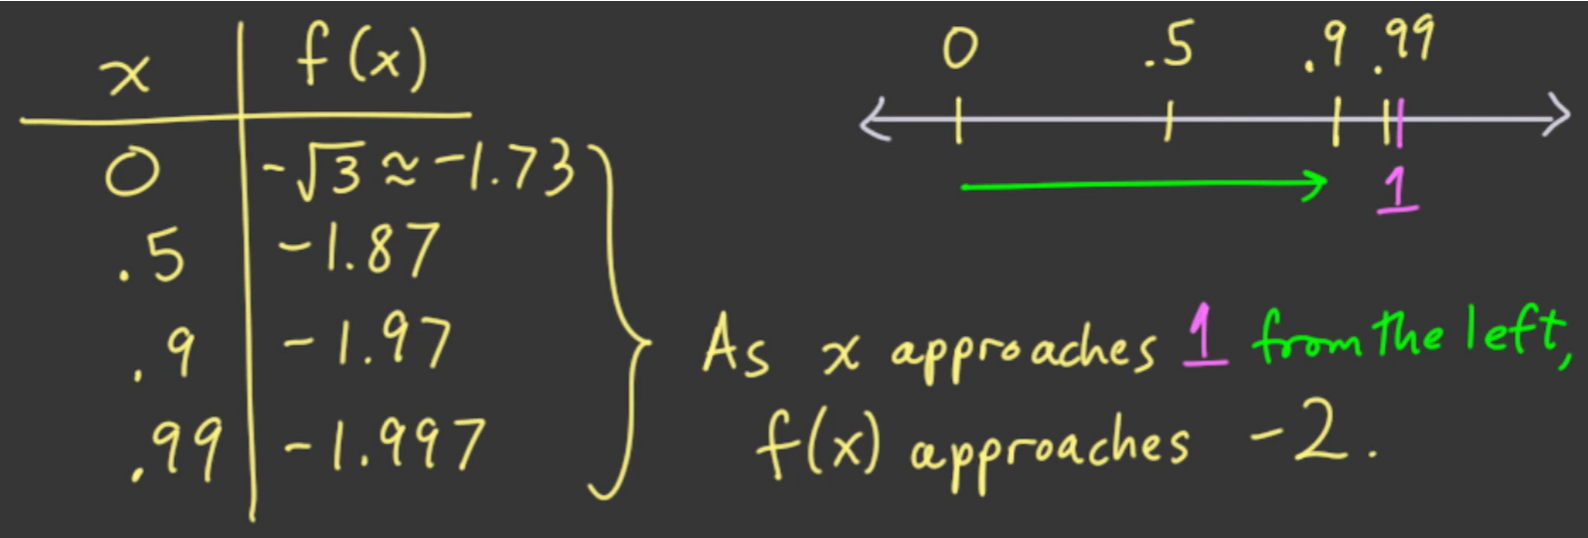 x f(x)
0 -√3 ≈ -1.73
.5 -1.87
.9 -1.97
.99 -1.997
0 .5 .9 .99
1
As x approaches 1 from the left,
f(x) approaches -2.